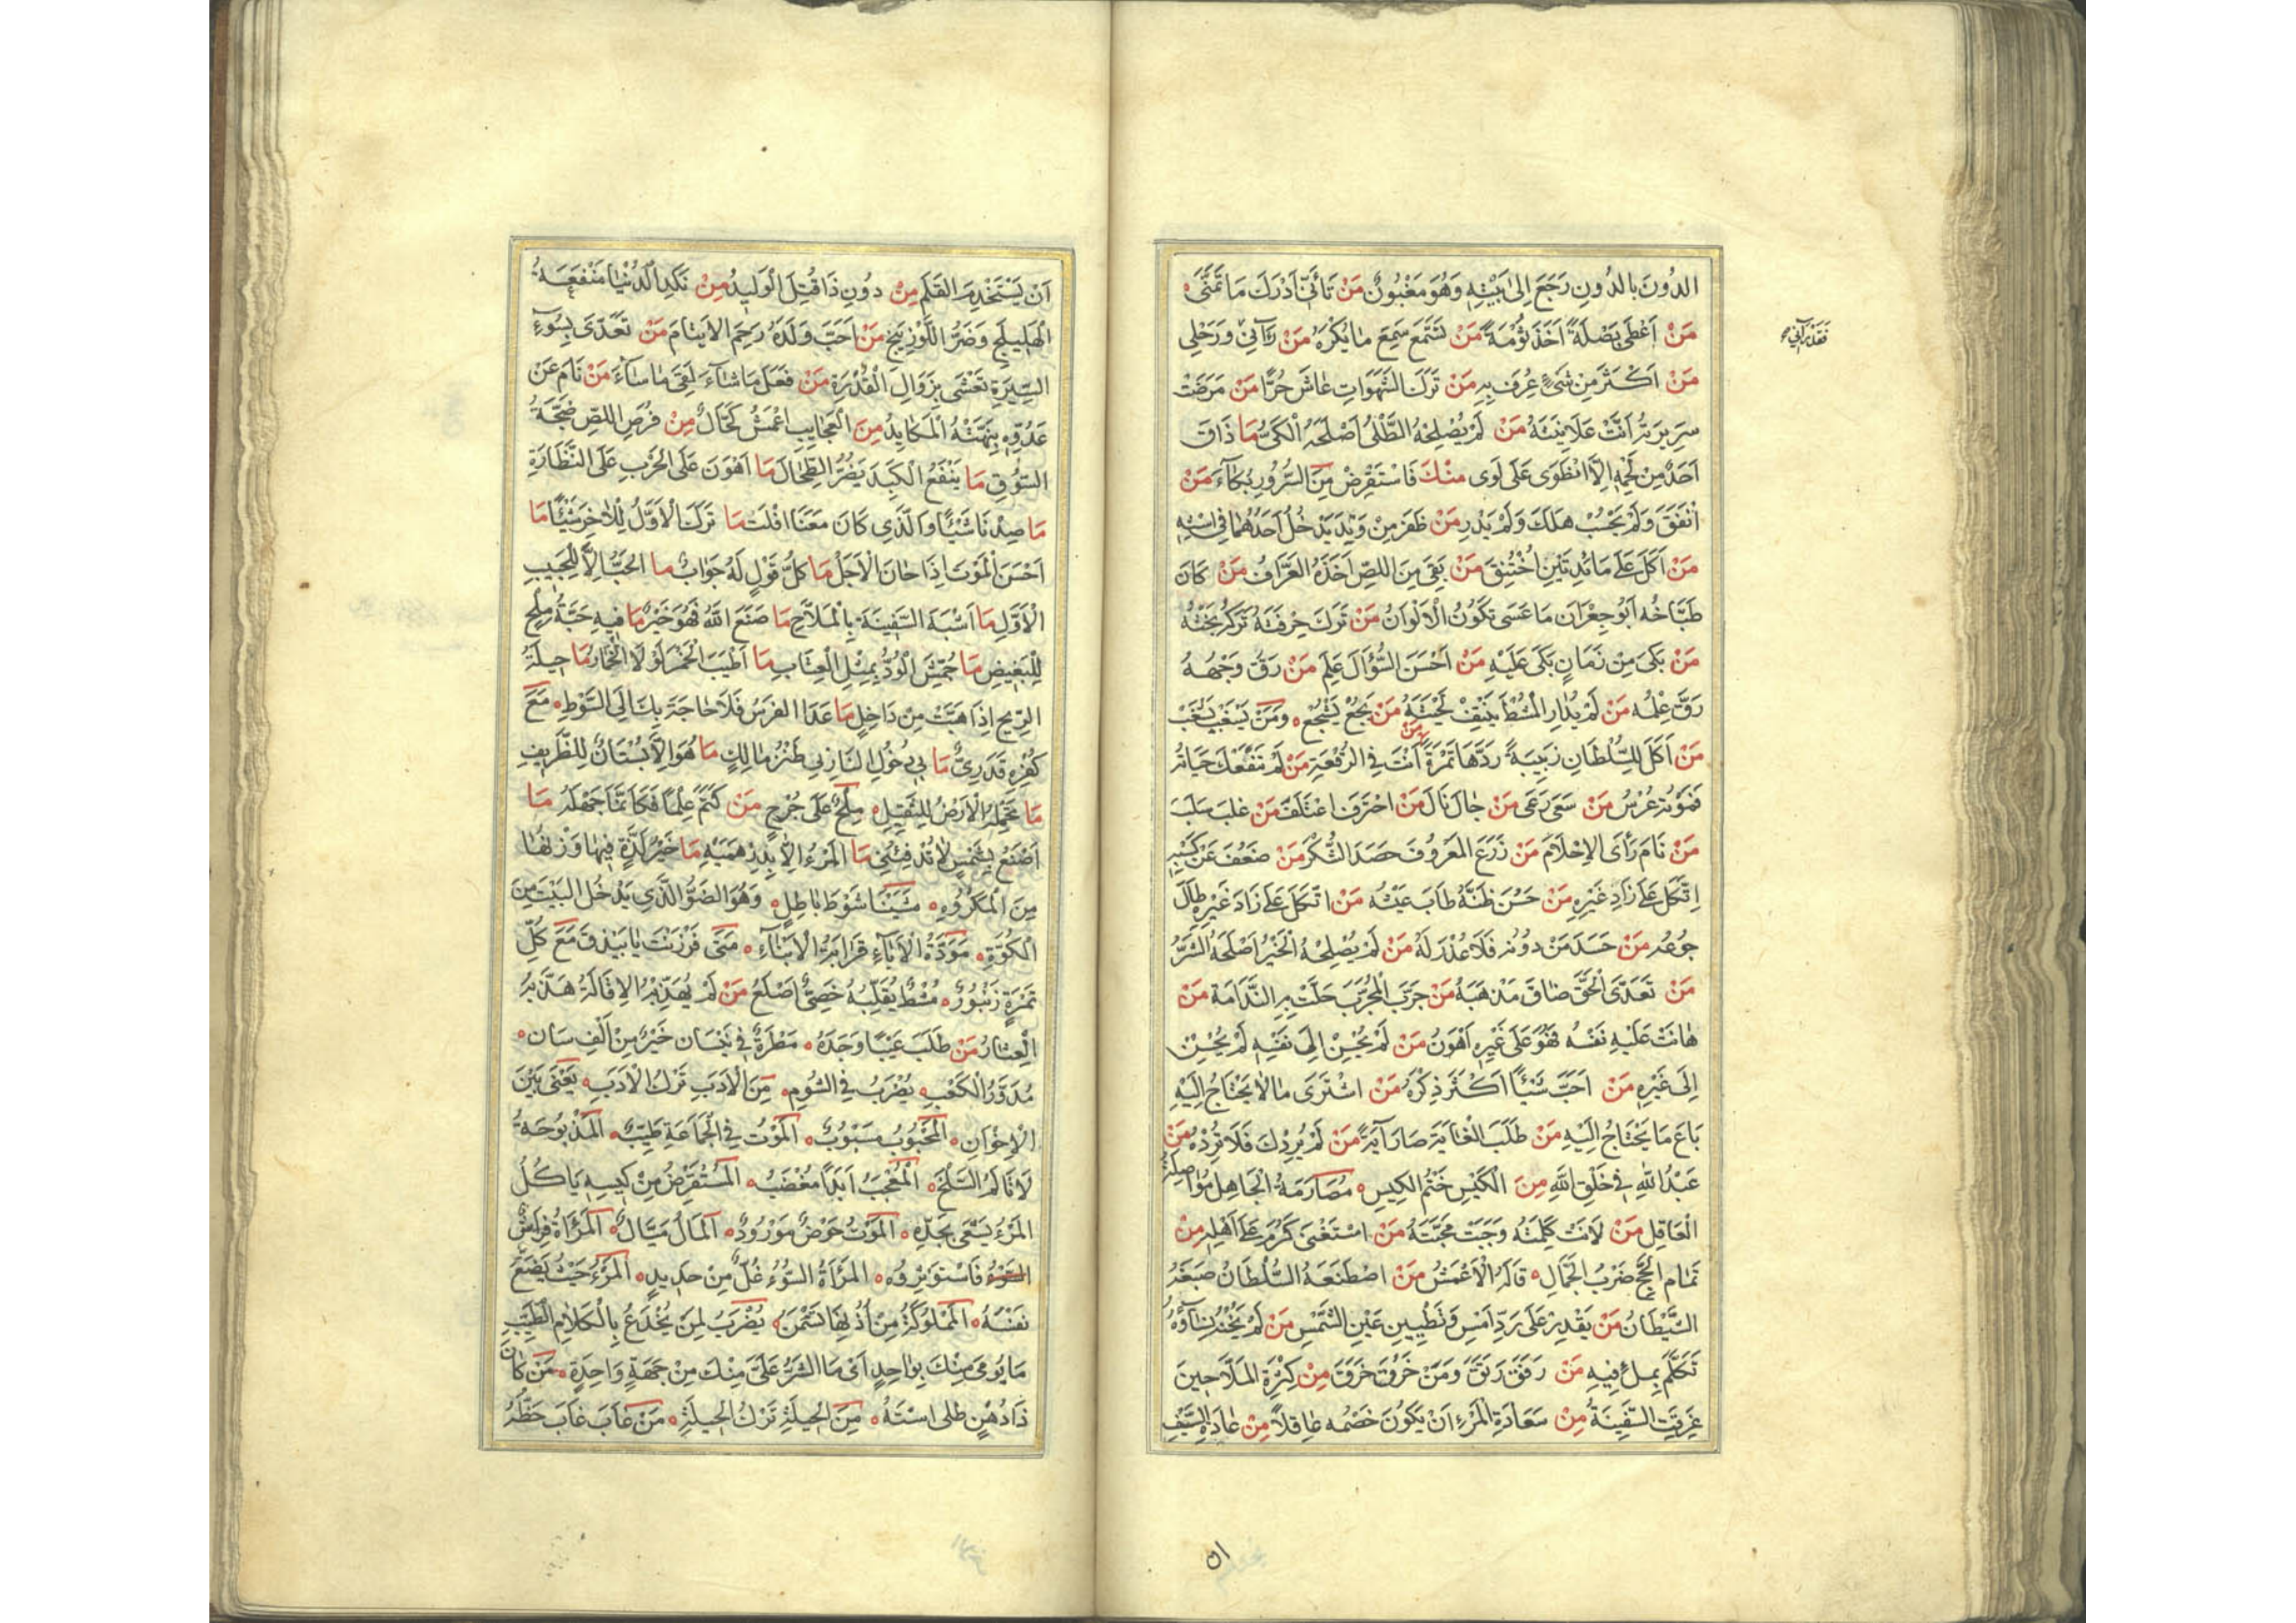 الدُونَ بِالدُونِ رَجَعَ اِلىٰ بَيْتِهِ وَهُوَ مَغْبُونٌ مَنْ تَأَنّٰى اَدْرَكَ مَا تَمَنّٰى
مَنْ اَعْطىٰ بَصَلَةً اَخَذَ ثُومَةً مَنْ تَسَمَّعَ سَمِعَ مَا يَكْرَهُ مَنْ رَآنِي وَرَحْلِي
فَقَدْ رَآنِي
مَنْ اَكْثَرَ مِنْ شَىْءٍ عُرِفَ بِهِ مَنْ تَرَكَ الشَّهَوَاتِ عَاشَ حُرًّا مَنْ مَرِضَتْ
سَرِيرَتُهُ اَنَّتْ عَلَانِيَتُهُ مَنْ لَمْ يُصْلِحْهُ الطَّلْىُ اَصْلَحَهُ الْكَىُّ مَا ذَاقَ
اَحَدٌ مِنْ لَحْمِهِ اِلَّا انْطَوَى عَلَى لَوَى مِنْكَ فَاسْتَقْرِضْ مِنَ السُّرُورِ بُكَاءً مَنْ
اَنْفَقَ وَلَمْ يَحْسُبْ هَلَكَ وَلَمْ يَدْرِ مَنْ ظَفَرَ مِنْ وَتِدٍ يَدْخُلُ اَحَدُهُمَا فِي اسْتِهِ
مَنْ اَكَلَ عَلَى مَائِدَتَيْنِ اخْتَنَقَ مَنْ بَقِيَ مِنَ اللِّصِّ اَخَذَهُ العَرَّافُ مَنْ كَانَ
طَبَّاخُهُ اَبُو جِعْرَانَ مَا عَسَى تَكُونُ الْاَلْوَانُ مَنْ تَرَكَ حِرْفَتَهُ تَرَكَهُ بَخْتُهُ
مَنْ بَكَى مِنْ زَمَانٍ بَكَى عَلَيْهِ مَنْ اَحْسَنَ السُّؤَالَ عَلِمَ مَنْ رَقَّ وَجْهُهُ
رَقَّ عِلْمُهُ مَنْ لَمْ يُدَارِ الْمُشْطَ يَنْتِفْ لِحْيَتَهُ مَنْ يَجُعْ يَشْجُعْ وَمَنْ يَسْغَبْ يَشْغَبْ
مَنْ اَكَلَ لِلسُّلْطَانِ زَبِيبَةً رَدَّهَا تَمْرَةً مَنْ اَنْتَ فِي الرُّقْعَةِ مَنْ لَمْ تَنْفَعْكَ حَيَاتُهُ
فَمَوْتُهُ عُرْسٌ مَنْ سَعَى رَعَى مَنْ جَالَ نَالَ مَنْ احْتَرَفَ اعْتَلَفَ مَنْ غَلَبَ سَلَبَ
مَنْ نَامَ رَأَى الاِحْلَامَ مَنْ زَرَعَ المَعْرُوفَ حَصَدَ الشُّكْرَ مَنْ ضَعُفَ عَنْ كَسْبِهِ
اِتَّكَلَ عَلَى زَادِ غَيْرِهِ مَنْ حَسُنَ ظَنُّهُ طَابَ عَيْشُهُ مَنْ اتَّكَلَ عَلَى زَادَ غَيْرِهِ طَالَ
جُوعُهُ مَنْ حَسَدَ مَنْ دُونَهُ فَلَا عُذْرَ لَهُ مَنْ لَمْ يُصْلِحْهُ الْخَيْرُ اَصْلَحَهُ الشَّرُّ
مَنْ تَعَدَّى الْحَقَّ ضَاقَ مَذْهَبُهُ مَنْ جَرَّبَ الْمُجَرَّبَ حَلَّتْ بِهِ النَّدَامَةُ مَنْ
هَانَتْ عَلَيْهِ نَفْسُهُ فَهُوَ عَلَى غَيْرِهِ اَهْوَنُ مَنْ لَمْ يُحْسِنْ اِلَى نَفْسِهِ لَمْ يُحْسِنْ
اِلَى غَيْرِهِ مَنْ اَحَبَّ شَيْئًا اَكْثَرَ ذِكْرَهُ مَنْ اشْتَرَى مَا لَا يَحْتَاجُ اِلَيْهِ
بَاعَ مَا يَحْتَاجُ اِلَيْهِ مَنْ طَلَبَ الْغَايَةَ صَارَ آيَةً مَنْ لَمْ يُرِدْكَ فَلَا تُرِدْهُ مَنْ
عَبْدُ اللهِ فِي خَلْقِ اللهِ مِنَ الْكَيْسِ خَتْمُ الكِيسِ مُصَارَمَةُ الْجَاهِلِ مُوَاصِلَةُ
الْعَاقِلِ مَنْ لَانَتْ كَلِمَتُهُ وَجَبَتْ مَحَبَّتُهُ مَنْ اسْتَغْنَى كَرُمَ عَلَى اَهْلِهِ مِنْ
تَمَامِ الْحَجِّ ضَرْبُ الْجَمَّالِ قَالَهُ الْاَعْمَشُ مَنْ اصْطَنَعَهُ السُّلْطَانُ صَبَغَهُ
الشَّيْطَانُ مَنْ يَقْدِرُ عَلَى رَدِّ اَمْسِ وَتَطْيِينِ عَيْنِ الشَّمْسِ مَنْ لَمْ يَخُنْ نِسَاؤُهُ
تَكَلَّمَ بِمِلْءِ فِيهِ مَنْ رَفَقَ رَتَقَ وَمَنْ خَرُقَ خَرَقَ مِنْ كَثْرَةِ المَلَّاحِينَ
غَرِقَتِ السَّفِينَةُ مِنْ سَعَادَةِ الْمَرْءِ اَنْ يَكُونَ خَصْمُهُ عَاقِلًا مِنْ عَادَةِ السَّيْفِ
٥١
اَنْ يَسْتَخْدِمَ القَلَمَ مِنْ دُونِ ذَا قُتِلَ الْوَلِيدُ مِنْ نَكَدِ الدُّنْيَا مَنْفَعَةُ
الْهَلِيلَجِ وَضَرُّ اللَّوْزِينَجِ مَنْ اَحَبَّ وَلَدَهُ رَحِمَ الاَيتَامَ مَنْ تَعَدّىٰ بِسُوءِ
السِّيرَةِ تَغَشَّى بِزَوَالِ الْقُدْرَةِ مَنْ فَعَلَ مَا شَاءَ لَقِيَ مَا سَاءَ مَنْ نَامَ عَنْ
عَدُوِّهِ نَبَّهَتْهُ الْمَكَايِدُ مِنَ الْعَجَايِبِ اَعْمَشُ كَحَّالٌ مِنْ فُرَصِ اللِّصِّ ضَجَّةُ
السُّوقِ مَا يَنْفَعُ الْكَبِدَ يَضُرُّ الطِّحَالَ مَا اَهْوَنَ عَلَى الْحَرْبِ عَلَى النَّظَارَةِ
مَا صِدْنَا شَيْئًا وَالَّذِي كَانَ مَعَنَا افْلَتَ مَا تَرَكَ الْاَوَّلُ لِلْاٰخِرِ شَيْئًا مَا
اَحْسَنَ الْمَوْتَ اِذَا حَانَ الْاَجَلُ مَا كُلُّ قَوْلٍ لَهُ جَوَابٌ مَا الْحُبُّ اِلَّا لِلْحَبِيبِ
الْاَوَّلِ مَا اَشْبَهَ السَّفِينَةَ بِالْمَلَّاحِ مَا صَنَعَ اللهُ فَهُوَ خَيْرٌ مَا فِيهِ حَبَّةُ مِلْحٍ
لِلْبَغِيضِ مَا جُمِّشَ الْوُدُّ بِمِثْلِ الْعِتَابِ مَا اَطْيَبَ الْخَمْرَ لَوْلَا الْخُمَارُ مَا حِيلَةُ
الرِّيحِ اِذَا هَبَّتْ مِنْ دَاخِلٍ مَا عَدَا الفَرَسُ فَلَا حَاجَةَ بِكَ اِلَى السَّوْطِ مَعَ
كُفْرِهِ قَدَرِىٌّ مَا بِي دُخُولُ النَّارِ بِي طَنْزُ مَالِكٍ مَا هُوَ اِلَّا بُسْتَانٌ لِلظَّرِيفِ
مَا تَحْمِلُهُ الْاَرْضُ لِلثَّقِيلِ مِلْحٌ عَلَى جُرْحٍ مَنْ كَتَمَ عِلْمًا فَكَاَنَّمَا جَهِلَهُ مَا
اَصْنَعُ بِشَمْسٍ لَا تُدْفِئُنِي مَا الْمَرْءُ اِلَّا بِدِرْهَمَيْهِ مَا خَيْرُ لَذَّةٍ فِيهَا وَزْنُهَا
مِنَ الْمَكْرُوهِ مَشَيْنَا شَوْطَ بَاطِلٍ وَهُوَ الضَوُّ الَّذِي يَدْخُلُ البَيْتَ مِنَ
الْكُوَّةِ مَوَدَّةُ الْاٰبَاءِ قَرَابَةُ الْاَبْنَاءِ مَتَى فَرْزَنْتَ يَا بَيْذَقُ مَعَ كُلِّ
تَمْرَةٍ زَنْبُورٌ مُشْطٌ يُقَلِّبُهُ خَصِىٌّ اَصْلَعُ مَنْ لَمْ يُهَذِّبْهُ الاِقَالَةُ هَذَّبَهُ
الْعِثَارُ مَنْ طَلَبَ عَيْبًا وَجَدَهُ مَطْرَةٌ فِي نَيْسَانَ خَيْرٌ مِنْ اَلْفِ سَانٍ
مُدَوَّرُ الْكَعْبِ يُضْرَبُ فِي الشُومِ مِنَ الْاَدَبِ تَرْكُ الْاَدَبِ يَعْنَى بَيْنَ
الْاِخْوَانِ الْمَحْبُوبُ مَسْبُوبٌ الْمَوْتُ فِي الْجَمَاعَةِ طَيِّبٌ الْمَذْبُوحَةُ
لَا تَأْلَمُ السَّلْخَ الْمُعْجَبُ اَبَدًا مُغْضَبٌ الْمُسْتَقْرِضُ مِنْ كِيسِهِ يَاكُلُ
الْمَرْءُ يَسْعَى بِجَدِّهِ الْمَوْتُ حَوْضٌ مَوْرُودٌ اَلْمَالُ مَيَّالٌ الْمَرْاَةُ فِرَاشٌ
فَاسْتَوْثِرُوهُ المَرْاَةُ السُّوْءُ غُلٌّ مِنْ حَدِيدٍ الْمَرْءُ حَيْثُ يَضَعُ
نَفْسَهُ الْمَمْلُوكَةُ مِنْ اُذُنِهَا تَسْمَنُ يُضْرَبُ لِمَنْ يُخْدَعُ بِالْكَلَامِ الطَّيِّبِ
مَا يُومَى مِنْكَ بِوَاحِدٍ اَىْ مَا الشَرُّ عَلَىَّ مِنْكَ مِنْ جِهَةٍ وَاحِدَةٍ مَنْ كَانَ
ذَا دُهْنٍ طَلَى اسْتَهُ مِنَ الْحِيلَةِ تَرْكُ الْحِيلَةِ مَنْ غَابَ غَابَ حَظُّهُ